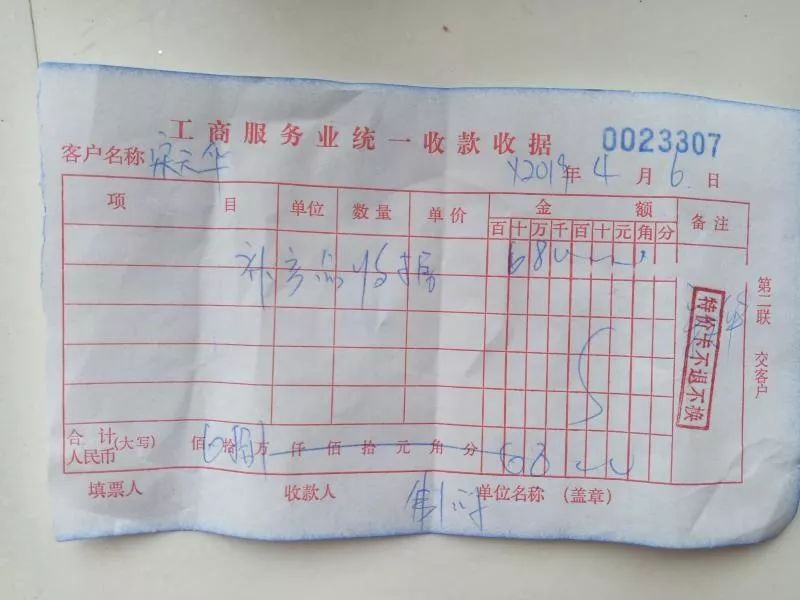 工商服务业统一收款收据 0023307
客户名称 宋云华 2019年4月6日
项目 单位 数量 单价 金额 备注
百十万千百十元角分
补产品收据 68
特价卡不退不换
第二联 交客户
合计人民币(大写) 佰 拾 万 仟 佰 拾 元 角 分 68
填票人 收款人 单位名称(盖章)